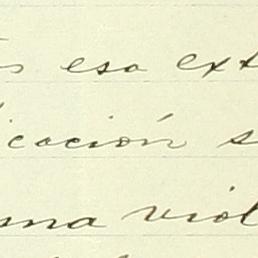 s eso ext
icación s
una viol